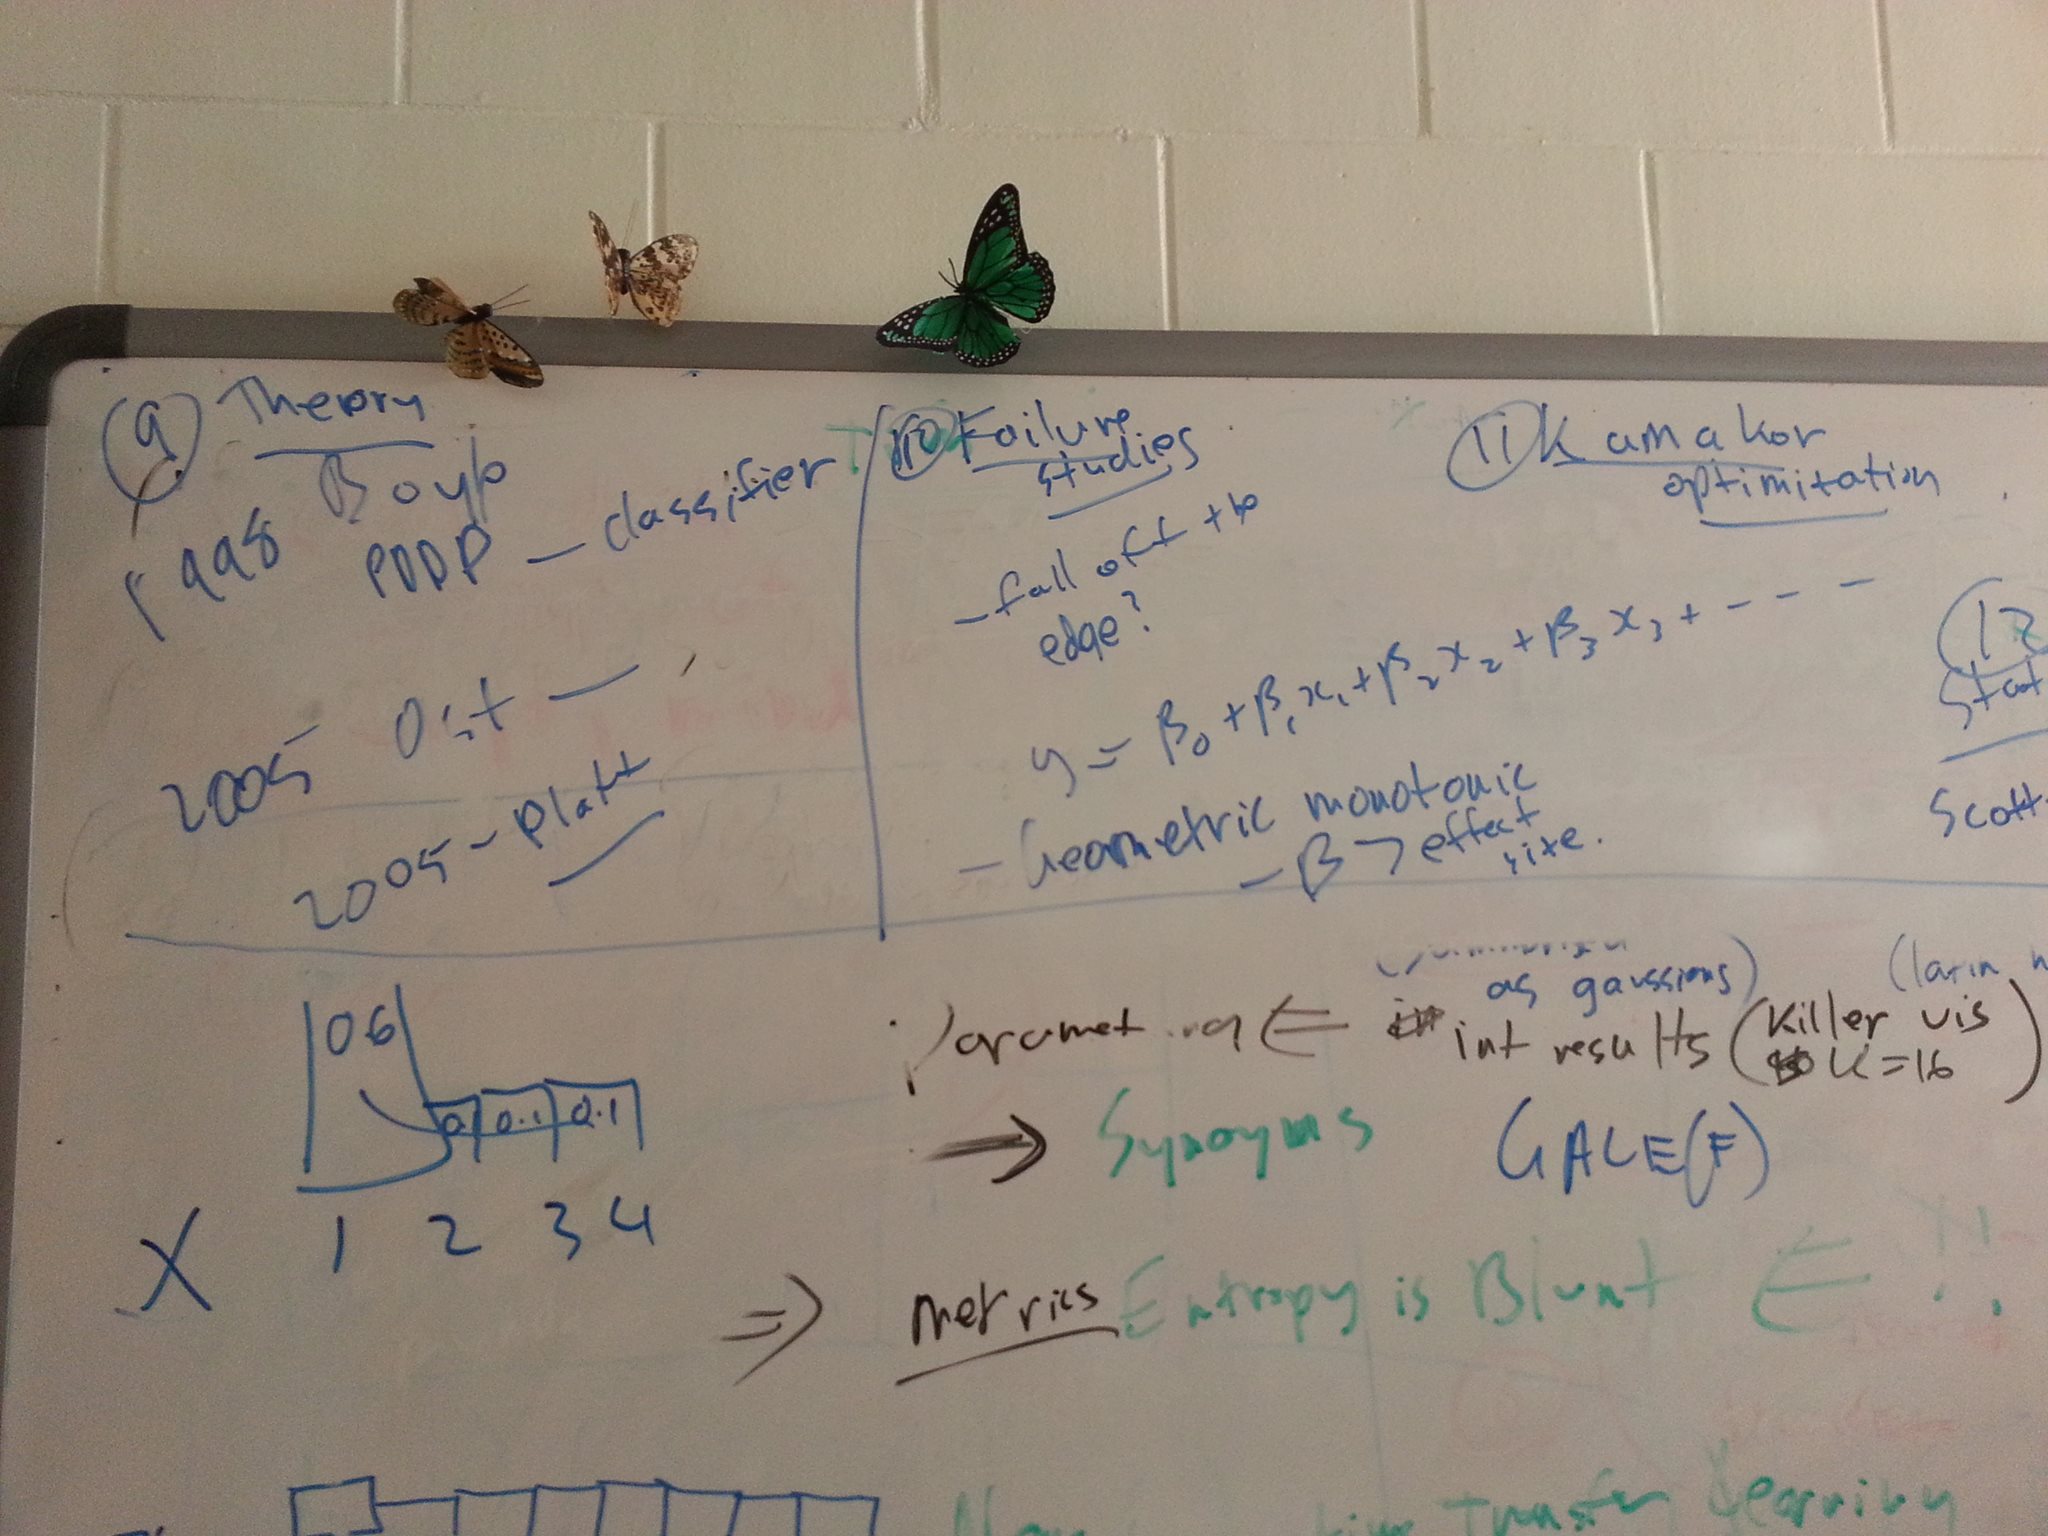 9 Theory
Boyp
1998 PDDP - classifier
2005 Ost -
2005 - Platt
10 Failure
studies
- fall off the
edge?
y = β0 + β1x1 + β2x2 + β3x3 + - - -
- Geometric monotonic
- β > effect
size.
11 Kamakor
optimitation
12
Stat
Scott
0.6
0 0.1 0.1
X 1 2 3 4
as gaussians)
(latin h
⇐ int results (Killer vis
K=16)
⇒ Synonyms GALE(F)
⇒ metrics Entropy is Blunt ⇐ !!
Transfer learning